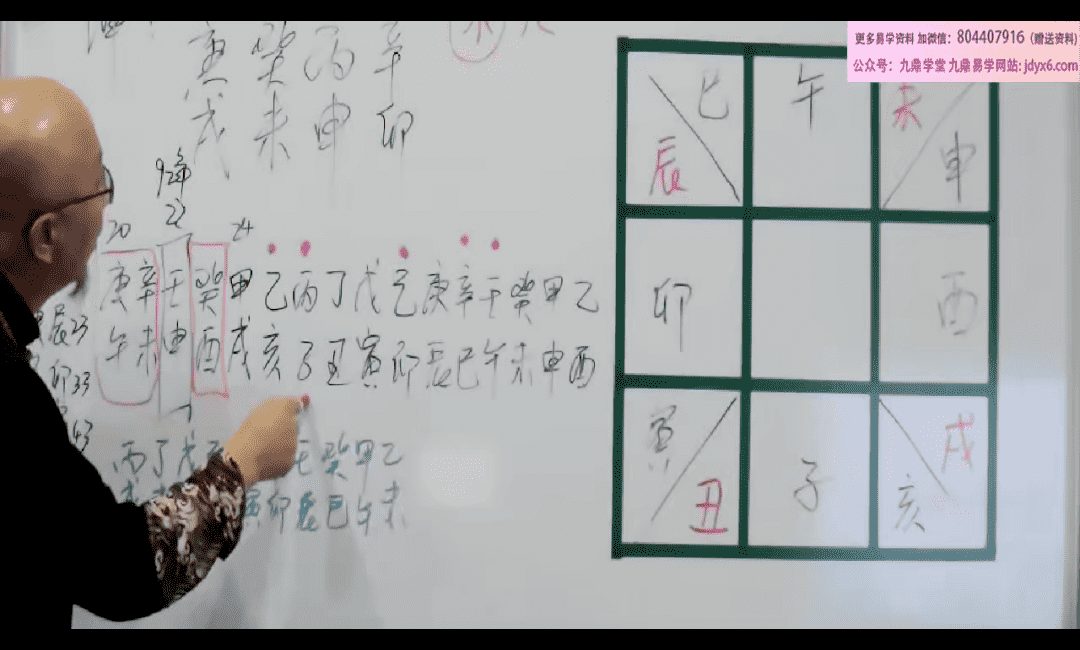 更多易学资料 加微信：804407916（赠送资料）
公众号：九鼎学堂 九鼎易学网站：jdyx6.com
寅 癸 丙 辛
戌 未 申 卯
22
20 24
庚辛壬癸甲乙丙丁戊己庚辛壬癸甲乙
午未申酉戌亥子丑寅卯辰巳午未申酉
辰23
卯33
43
丙丁戊 壬癸甲乙
寅卯辰巳午未
巳 午 未
辰 申
卯 酉
寅 子 戌
丑 亥